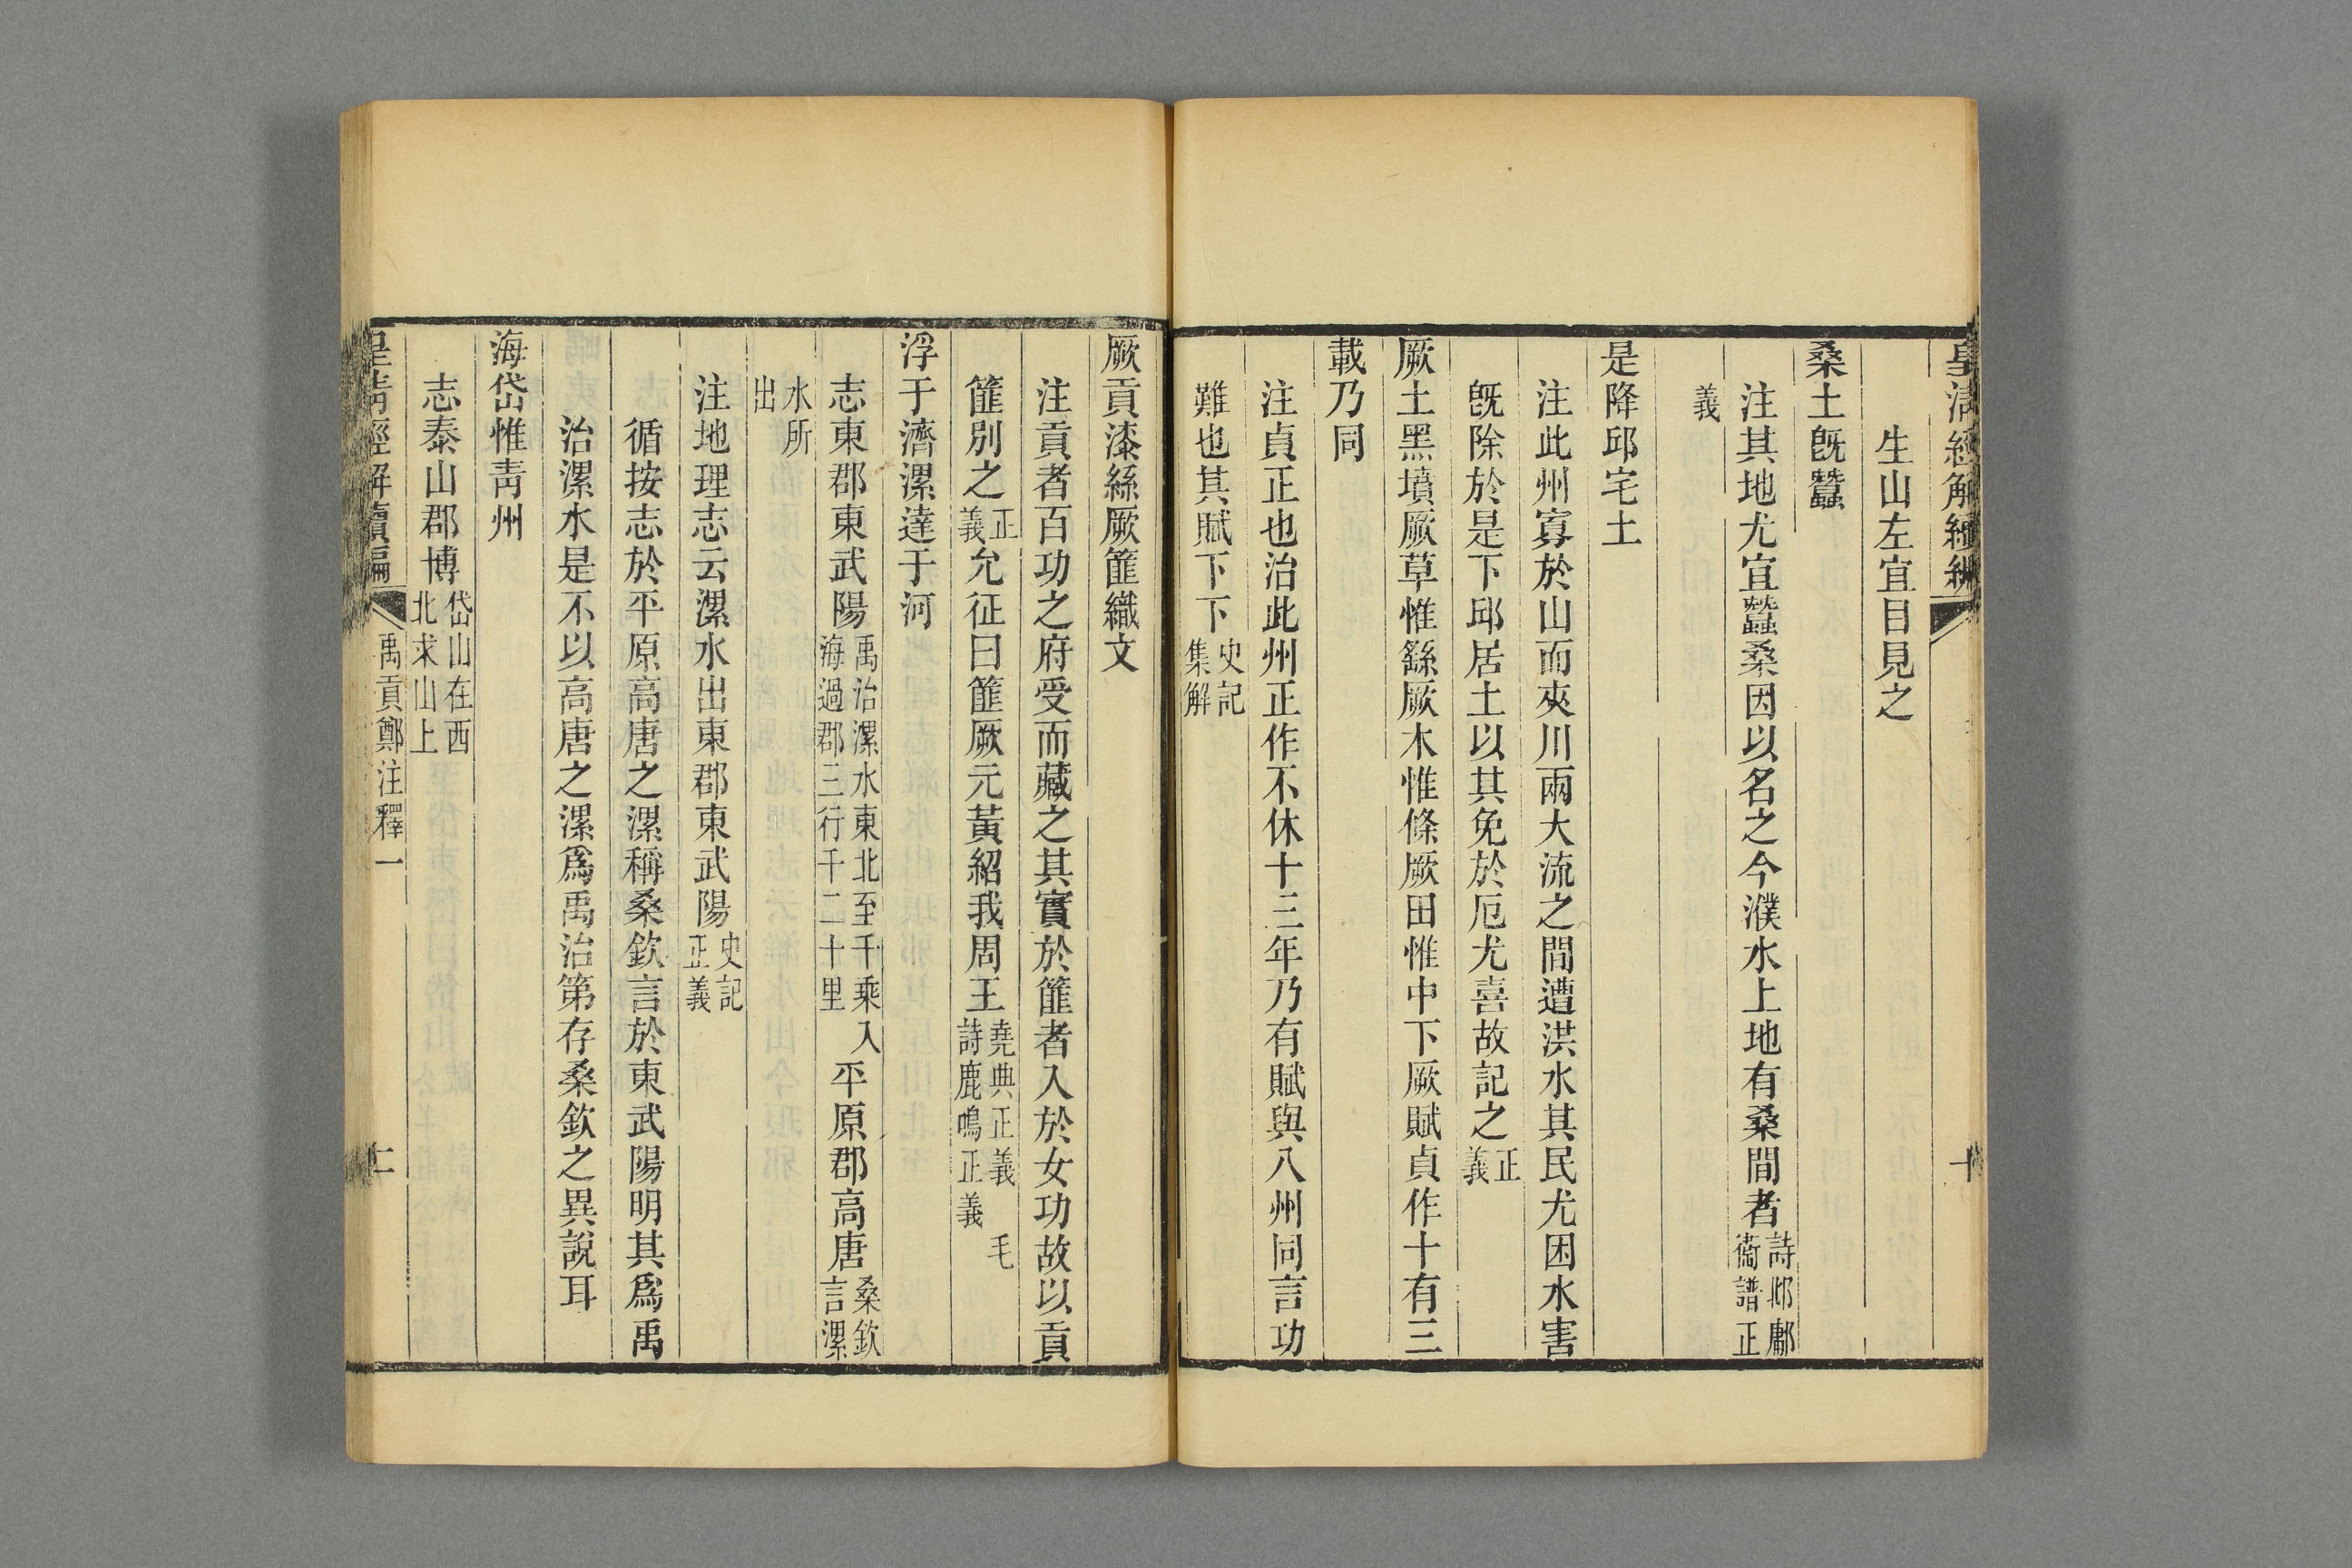 皇清經解續編 十
生山左宜目見之
桑土旣蠶
注其地尤宜蠶桑因以名之今濮水上地有桑間者詩邶鄘衞譜正
義
是降邱宅土
注此州寡於山而夾川兩大流之間遭洪水其民尤困水害
旣除於是下邱居土以其免於厄尤喜故記之正義
厥土黑墳厥草惟繇厥木惟條厥田惟中下厥賦貞作十有三
載乃同
注貞正也治此州正作不休十三年乃有賦與八州同言功
難也其賦下下史記集解
厥貢漆絲厥篚織文
注貢者百功之府受而藏之其實於篚者入於女功故以貢
篚別之正義允征曰篚厥元黃紹我周王堯典正義 毛詩鹿鳴正義
浮于濟漯達于河
志東郡東武陽禹治漯水東北至千乘入海過郡三行千二十里平原郡高唐桑欽言漯
水所出
注地理志云漯水出東郡東武陽史記正義
循按志於平原高唐之漯稱桑欽言於東武陽明其爲禹
治漯水是不以高唐之漯爲禹治第存桑欽之異說耳
海岱惟靑州
志泰山郡博岱山在西北求山上
皇淸經解續編 禹貢鄭注釋一